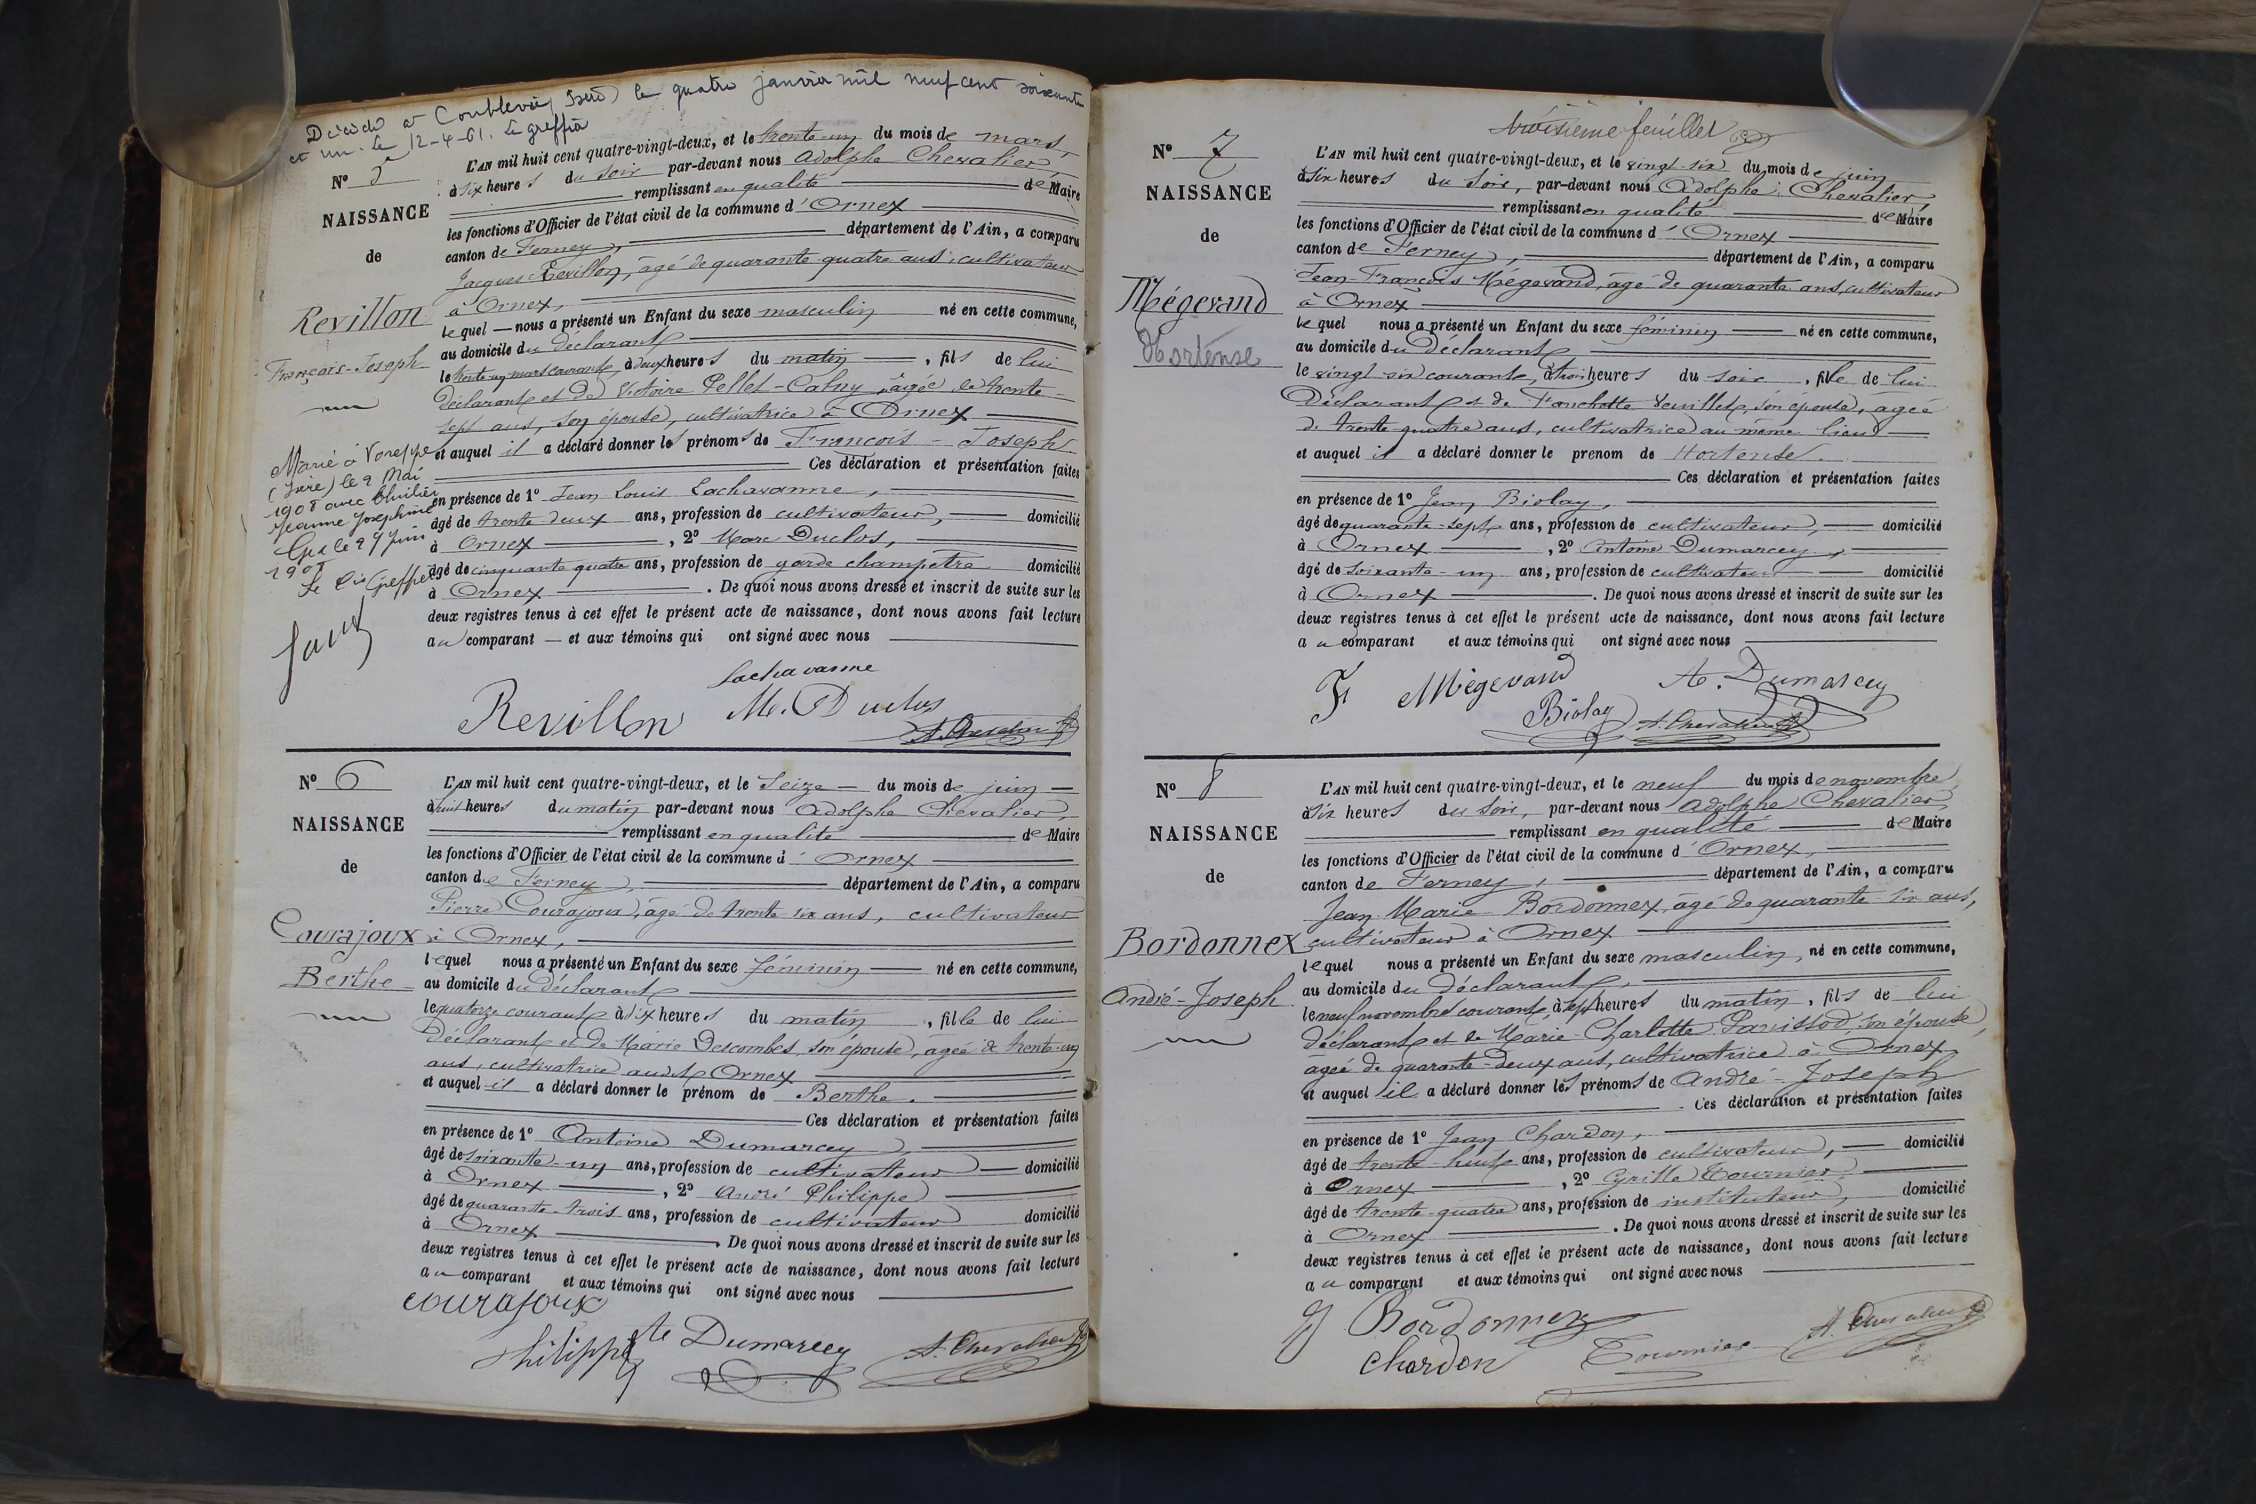 Décédé à Coublevie (Isère) le quatre janvier mil neuf cent soixante
et un. Le 12-4-61. Le greffier
N° 5
NAISSANCE
de
Revillon
François-Joseph
Marié à Voreppe
(Isère) le 9 Mai
1908 avec
Jeanne Joséphine
Gex le 29 Juin
1908
Le Greffier
L'AN mil huit cent quatre-vingt-deux, et le trente-un du mois de mars,
à six heures du soir par-devant nous Adolphe Chevalier
remplissant en qualité de Maire
les fonctions d'Officier de l'état civil de la commune d'Ornex
canton de Ferney, département de l'Ain, a comparu
Jacques Revillon, âgé de quarante-quatre ans, cultivateur
à Ornex,
lequel — nous a présenté un Enfant du sexe masculin né en cette commune,
au domicile du déclarant
le trente-un mars courant, à deux heures du matin, fils de lui
déclarant et de Victoire Pellet-Calny, âgée de trente-
sept ans, son épouse, cultivatrice à Ornex
et auquel il a déclaré donner les prénoms de François-Joseph
Ces déclaration et présentation faites
en présence de 1° Jean Louis Lachavanne,
âgé de trente-deux ans, profession de cultivateur, domicilié
à Ornex, 2° Marc Duclos,
âgé de cinquante quatre ans, profession de garde champêtre domicilié
à Ornex. De quoi nous avons dressé et inscrit de suite sur les
deux registres tenus à cet effet le présent acte de naissance, dont nous avons fait lecture
au comparant — et aux témoins qui ont signé avec nous
Lachavanne
Revillon M. Duclos
A. Chevalier
N° 6
NAISSANCE
de
Courajoux
Berthe
L'AN mil huit cent quatre-vingt-deux, et le seize du mois de juin
à huit heures du matin par-devant nous Adolphe Chevalier,
remplissant en qualité de Maire
les fonctions d'Officier de l'état civil de la commune d'Ornex
canton de Ferney, département de l'Ain, a comparu
Pierre Courajoux, âgé de trente six ans, cultivateur
à Ornex,
lequel nous a présenté un Enfant du sexe féminin né en cette commune,
au domicile du déclarant
le quatorze courant, à dix heures du matin, fille de lui
déclarant et de Marie Descombes, son épouse, âgée de trente-cinq
ans, cultivatrice audit Ornex
et auquel il a déclaré donner le prénom de Berthe.
Ces déclaration et présentation faites
en présence de 1° Antoine Dumarcey,
âgé de soixante-un ans, profession de cultivateur domicilié
à Ornex, 2° André Philippe
âgé de quarante-trois ans, profession de cultivateur domicilié
à Ornex. De quoi nous avons dressé et inscrit de suite sur les
deux registres tenus à cet effet le présent acte de naissance, dont nous avons fait lecture
au comparant et aux témoins qui ont signé avec nous
Courajoux
Philippe Ae Dumarcey A. Chevalier
troisième feuillet
N° 7
NAISSANCE
de
Mégevand
Hortense
L'AN mil huit cent quatre-vingt-deux, et le vingt-six du mois de juin
à six heures du soir, par-devant nous Adolphe Chevalier,
remplissant en qualité de Maire
les fonctions d'Officier de l'état civil de la commune d'Ornex
canton de Ferney, département de l'Ain, a comparu
Jean-François Mégevand, âgé de quarante ans, cultivateur
à Ornex
lequel nous a présenté un Enfant du sexe féminin né en cette commune,
au domicile du déclarant
le vingt-six courant, à trois heures du soir, fille de lui
déclarant et de Fanchette Veuillet, son épouse, âgée
de trente quatre ans, cultivatrice au même lieu
et auquel il a déclaré donner le prenom de Hortense.
Ces déclaration et présentation faites
en présence de 1° Jean Biolay,
âgé de quarante-sept ans, profession de cultivateur, domicilié
à Ornex, 2° Antoine Dumarcey,
âgé de soixante-un ans, profession de cultivateur domicilié
à Ornex. De quoi nous avons dressé et inscrit de suite sur les
deux registres tenus à cet effet le présent acte de naissance, dont nous avons fait lecture
au comparant et aux témoins qui ont signé avec nous
F Mégevand Ae. Dumarcey
Biolay A. Chevalier
N° 8
NAISSANCE
de
Bordonnex
André-Joseph
L'AN mil huit cent quatre-vingt-deux, et le neuf du mois de novembre
à six heures du soir, par-devant nous Adolphe Chevalier,
remplissant en qualité de Maire
les fonctions d'Officier de l'état civil de la commune d'Ornex,
canton de Ferney, département de l'Ain, a comparu
Jean-Marie Bordonnex, âgé de quarante-six ans,
cultivateur à Ornex
lequel nous a présenté un Enfant du sexe masculin, né en cette commune,
au domicile du déclarant,
le neuf novembre courant, à sept heures du matin, fils de lui
déclarant et de Marie-Charlotte Panissod son épouse,
âgée de quarante-deux ans, cultivatrice à Ornex
et auquel il a déclaré donner les prénoms de André-Joseph
. Ces déclaration et présentation faites
en présence de 1° Jean Chardon,
âgé de trente-huit ans, profession de cultivateur, domicilié
à Ornex, 2° Cyrille Tournier
âgé de trente-quatre ans, profession de instituteur, domicilié
à Ornex. De quoi nous avons dressé et inscrit de suite sur les
deux registres tenus à cet effet le présent acte de naissance, dont nous avons fait lecture
au comparant et aux témoins qui ont signé avec nous
J Bordonnex
Chardon Tournier A. Chevalier